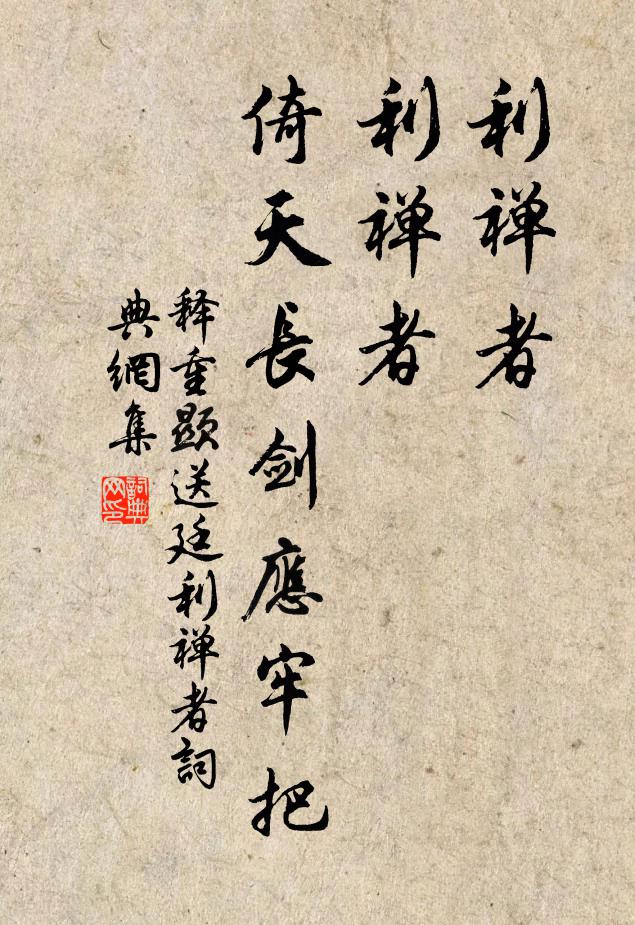 利禅者
利禅者
倚天長劍應牢把
释重顯送廷利禅者詞
典網集
詞典
网印